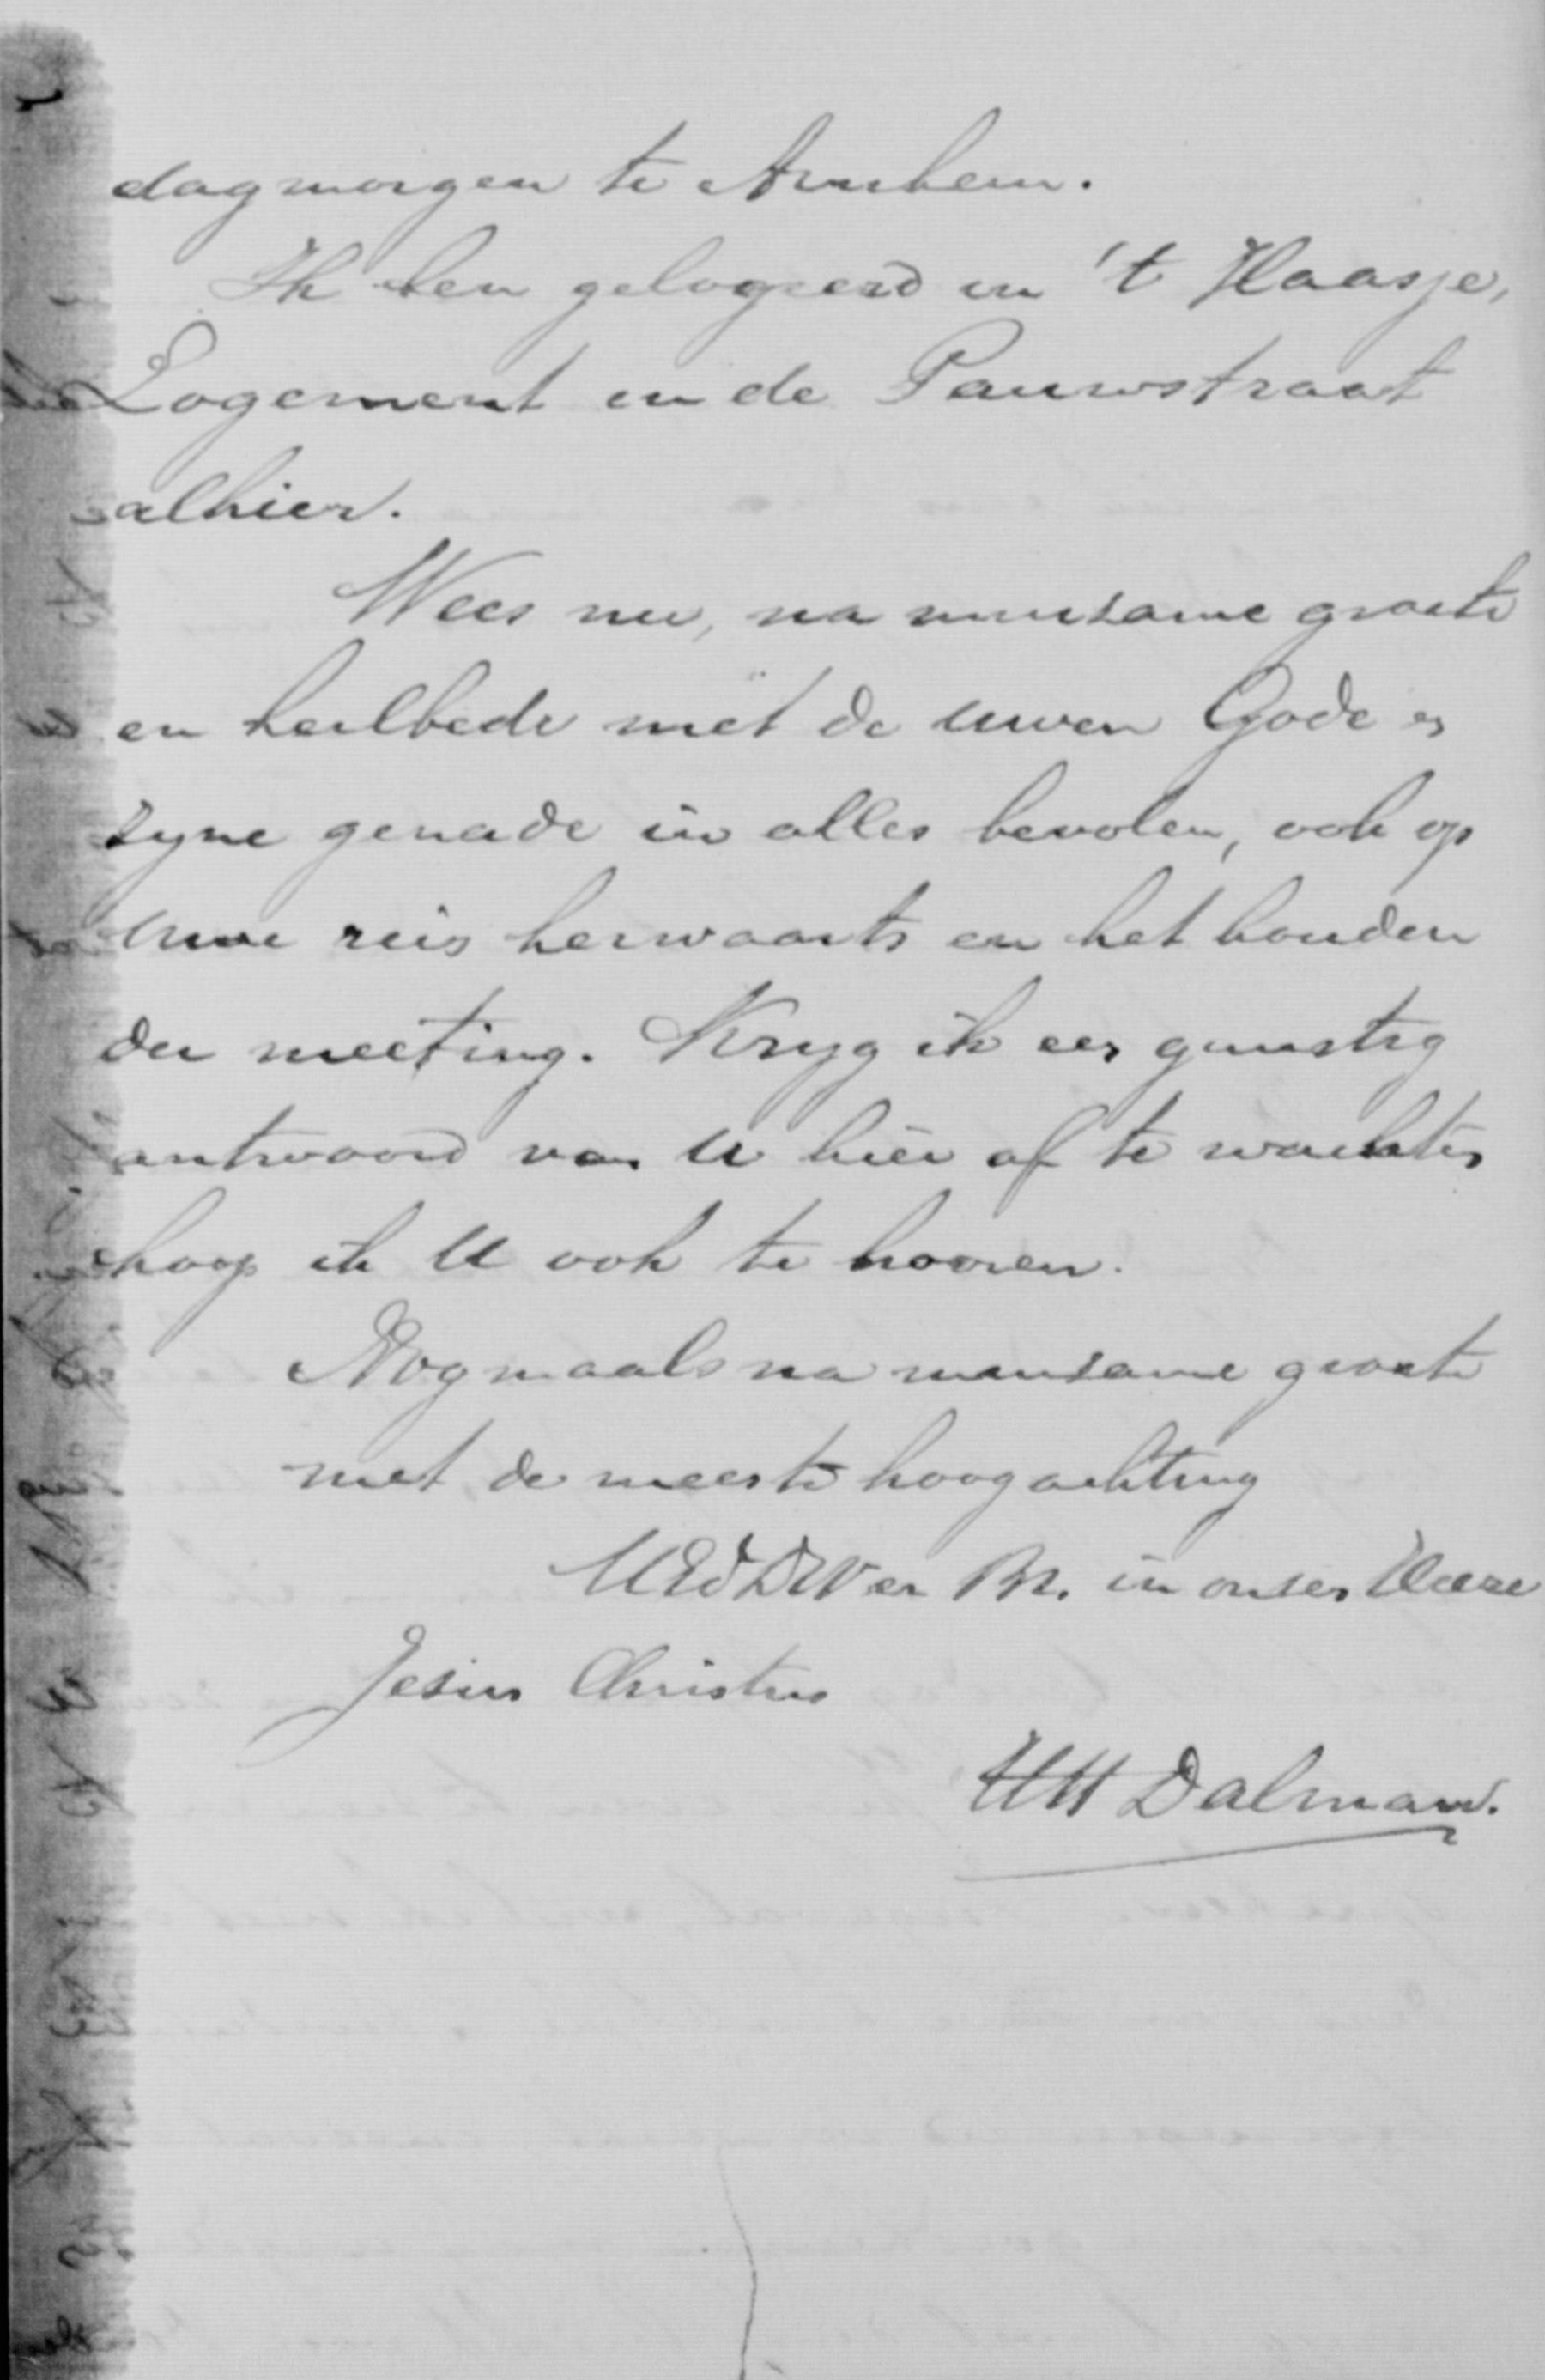 dagmorgen te Arnhem.
Ik ben gelogeerd in 't Haasje,
Logement in de Pauwstraat
alhier.
Wees nu, na minzame groete
en heilbede met de uwen Gode en
zyne genade in alles bevolen, ook op
uwe reis herwaarts en het houden
der meeting. Kryg ik een gunstig
antwoord van U hier af te wachten
hoop ik U ook te hooren.
Nogmaals na minzame groete
met de meeste hoogachting
UEdDW en Br. in onzen Heere
Jezus Christus
HH Dalman.